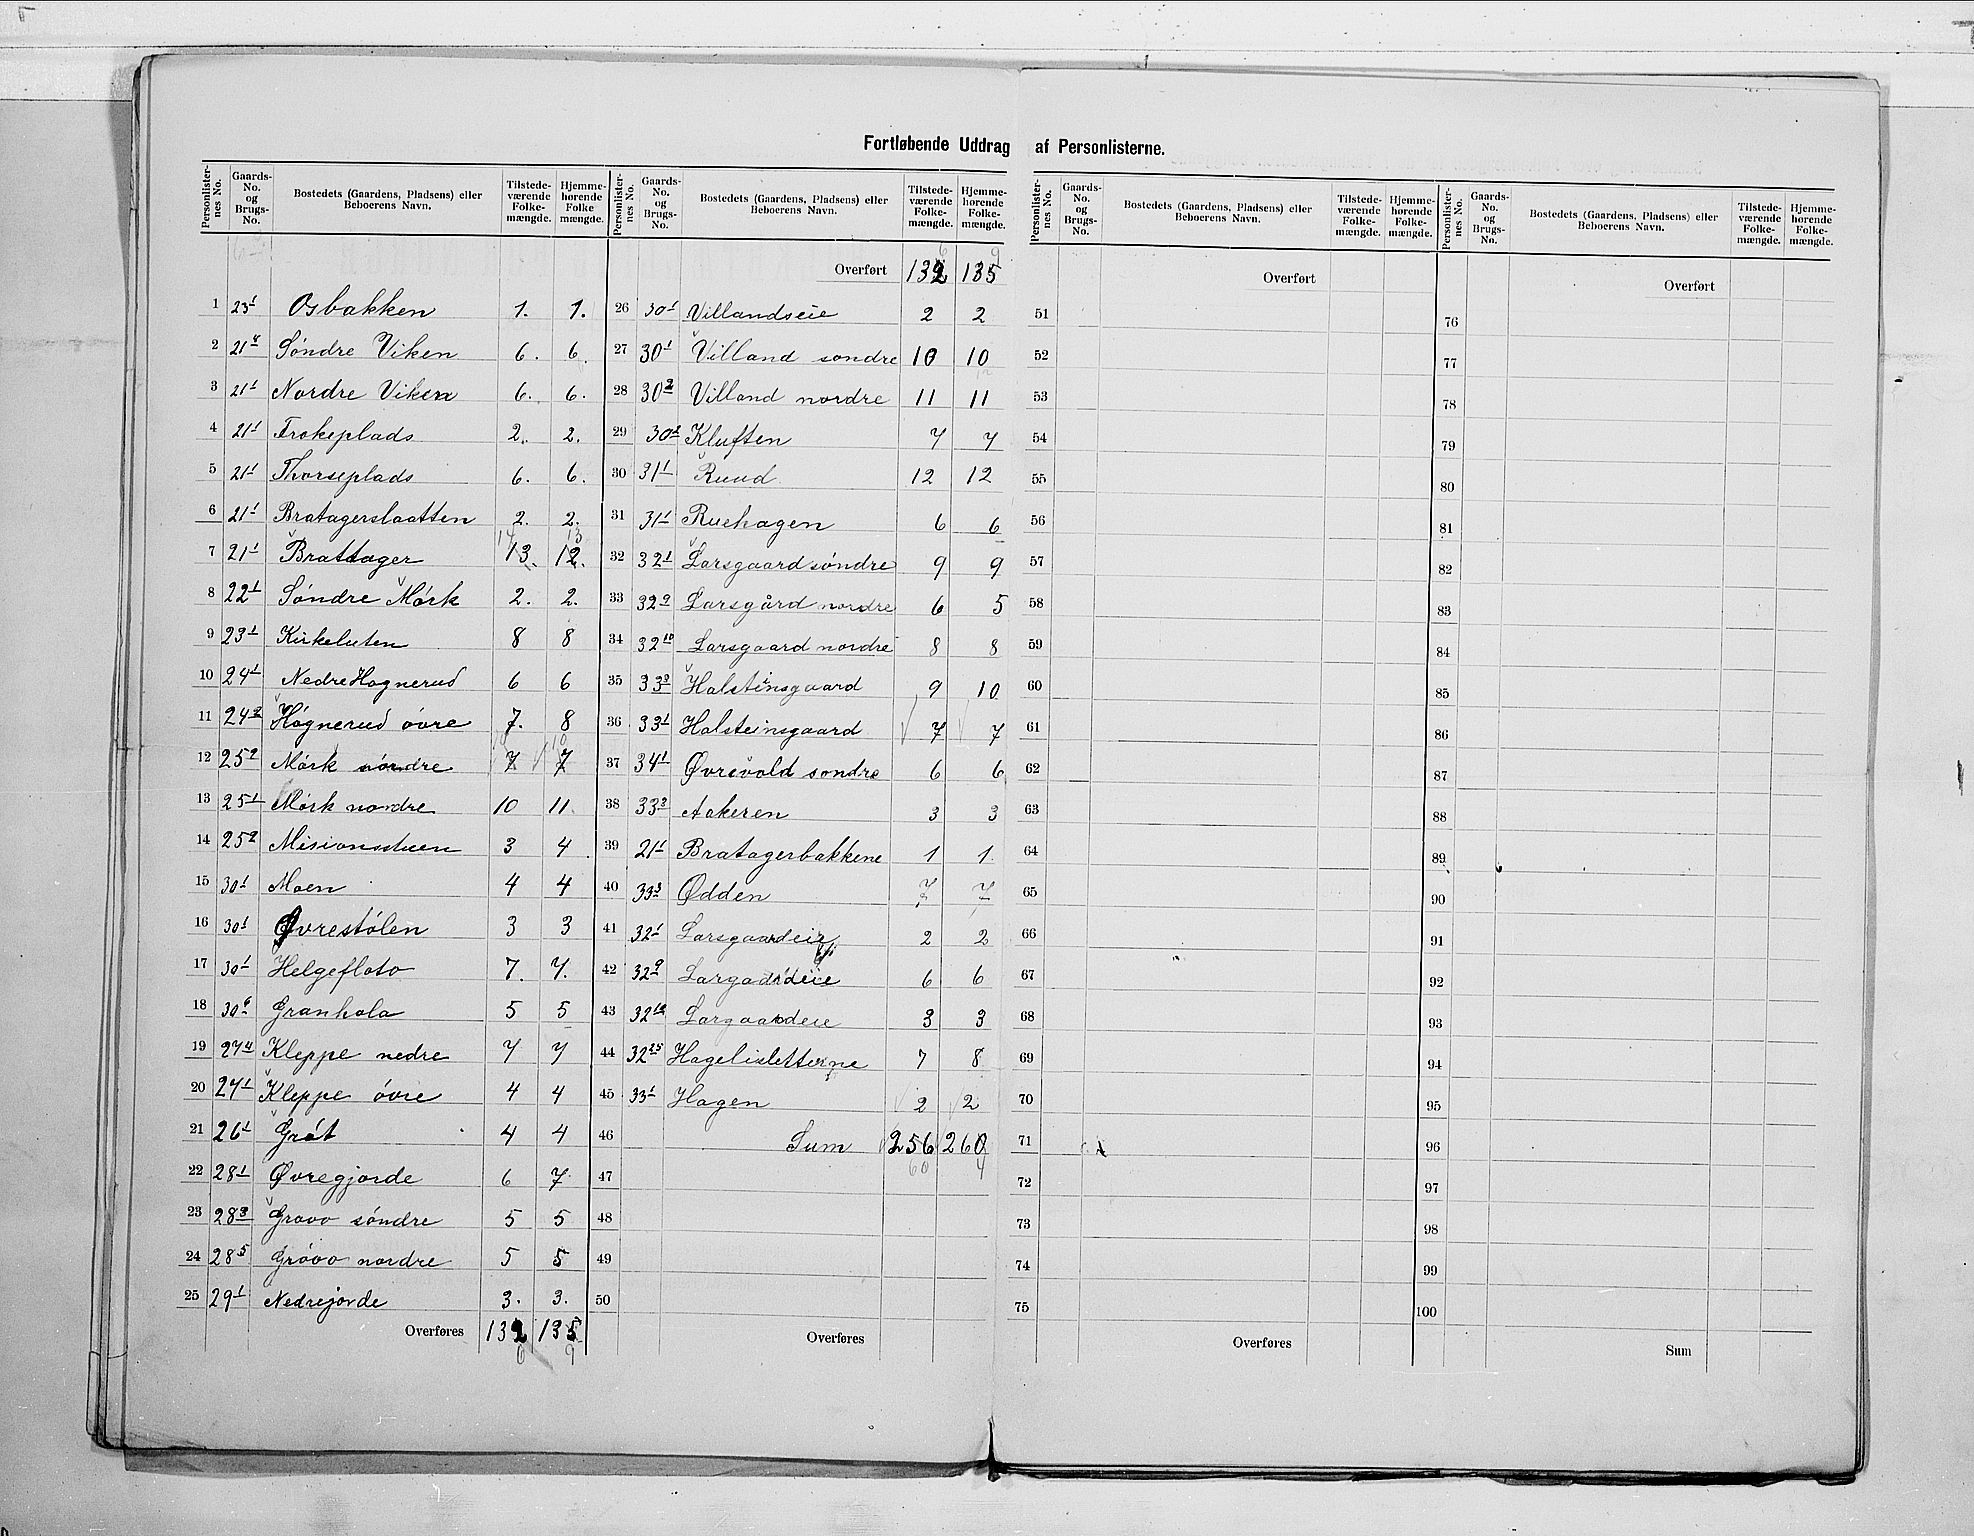 Fortløbende Uddrag af Personlisterne.
Personlisternes No. | Gaards-No. og Brugs-No. | Bostedets (Gaardens, Pladsens) eller Beboerens Navn. | Tilstedeværende Folkemængde. | Hjemmehørende Folkemængde.
1 23¹ Osbakken 1. 1.
2 21⁴ Søndre Viken 6. 6.
3 21¹ Nordre Viken 6. 6.
4 21¹ Frokeplads 2. 2.
5 21¹ Thorseplads 6. 6.
6 21¹ Bratagerslaatten 2. 2.
7 21¹ Brattager 13. 12.
8 22¹ Søndre Mørk 2. 2.
9 23¹ Kirkeluten 8 8
10 24¹ Nedre Høgnerud 6 6
11 24² Høgnerud øvre 7. 8
12 25² Mørk nordre 7 7
13 25¹ Mørk nordre 10 11.
14 25² Misionsstuen 3 4
15 30¹ Moen 4 4
16 30¹ Øvrestølen 3 3
17 30¹ Helgefloto 7. 7.
18 30⁶ Granhola 5 5
19 27⁴ Kleppe nedre 7 7
20 27¹ Kleppe øvre 4 4
21 26¹ Grøt 4 4
22 28¹ Øvregjorde 6 7
23 28³ Grøvo søndre 5 5
24 28⁵ Grøvo nordre 5 5
25 29¹ Nedrejorde 3. 3.
Overføres 132 135
6 9
Personlisternes No. | Gaards-No. og Brugs-No. | Bostedets (Gaardens, Pladsens) eller Beboerens Navn. | Tilstedeværende Folkemængde. | Hjemmehørende Folkemængde.
Overført 132 135
26 30¹ Villandseie 2 2
27 30¹ Villand søndre 10 10
28 30² Villand nordre 11 11
29 30² Kluften 7 7
30 31¹ Ruud 12 12
31 31¹ Ruehagen 6 6
32 32¹ Larsgaard søndre 9 9
33 32⁹ Larsgård nordre 6 5
34 32¹⁰ Larsgaard nordre 8 8
35 33² Halstensgaard 9 10
36 33¹ Halsteinsgaard 7 7
37 34¹ Øvrevold søndre 6 6
38 33³ Aakeren 3 3
39 21¹ Bratagerbakkene 1 1.
40 33³ Ødden 7 7
41 32¹ Larsgaardeie 2 2
42 32⁹ Largarddeie 6 6
43 32¹⁰ Largaardeie 3 3
44 32²⁵ Hagelisletterne 7 8
45 33¹ Hagen 2 2
46 Sum 256 260
60 4
47
48
49
50
Overføres
Personlisternes No. | Gaards-No. og Brugs-No. | Bostedets (Gaardens, Pladsens) eller Beboerens Navn. | Tilstedeværende Folkemængde. | Hjemmehørende Folkemængde.
Overført
51
52
53
54
55
56
57
58
59
60
61
62
63
64
65
66
67
68
69
70
71
72
73
74
75
Overføres
Personlisternes No. | Gaards-No. og Brugs-No. | Bostedets (Gaardens, Pladsens) eller Beboerens Navn. | Tilstedeværende Folkemængde. | Hjemmehørende Folkemængde.
Overført
76
77
78
79
80
81
82
83
84
85
86
87
88
89
90
91
92
93
94
95
96
97
98
99
100
Sum